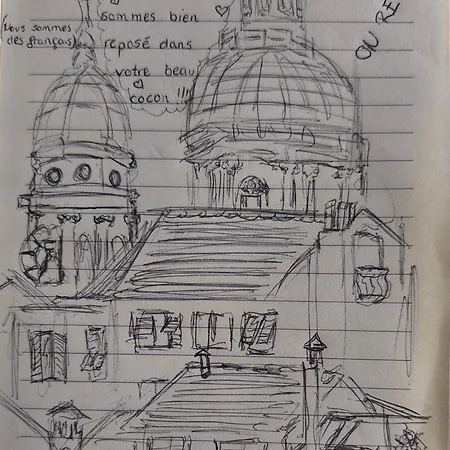 sommes bien
(Nous sommes
des français)
reposé dans
votre beau
cocon !!!
OU RE